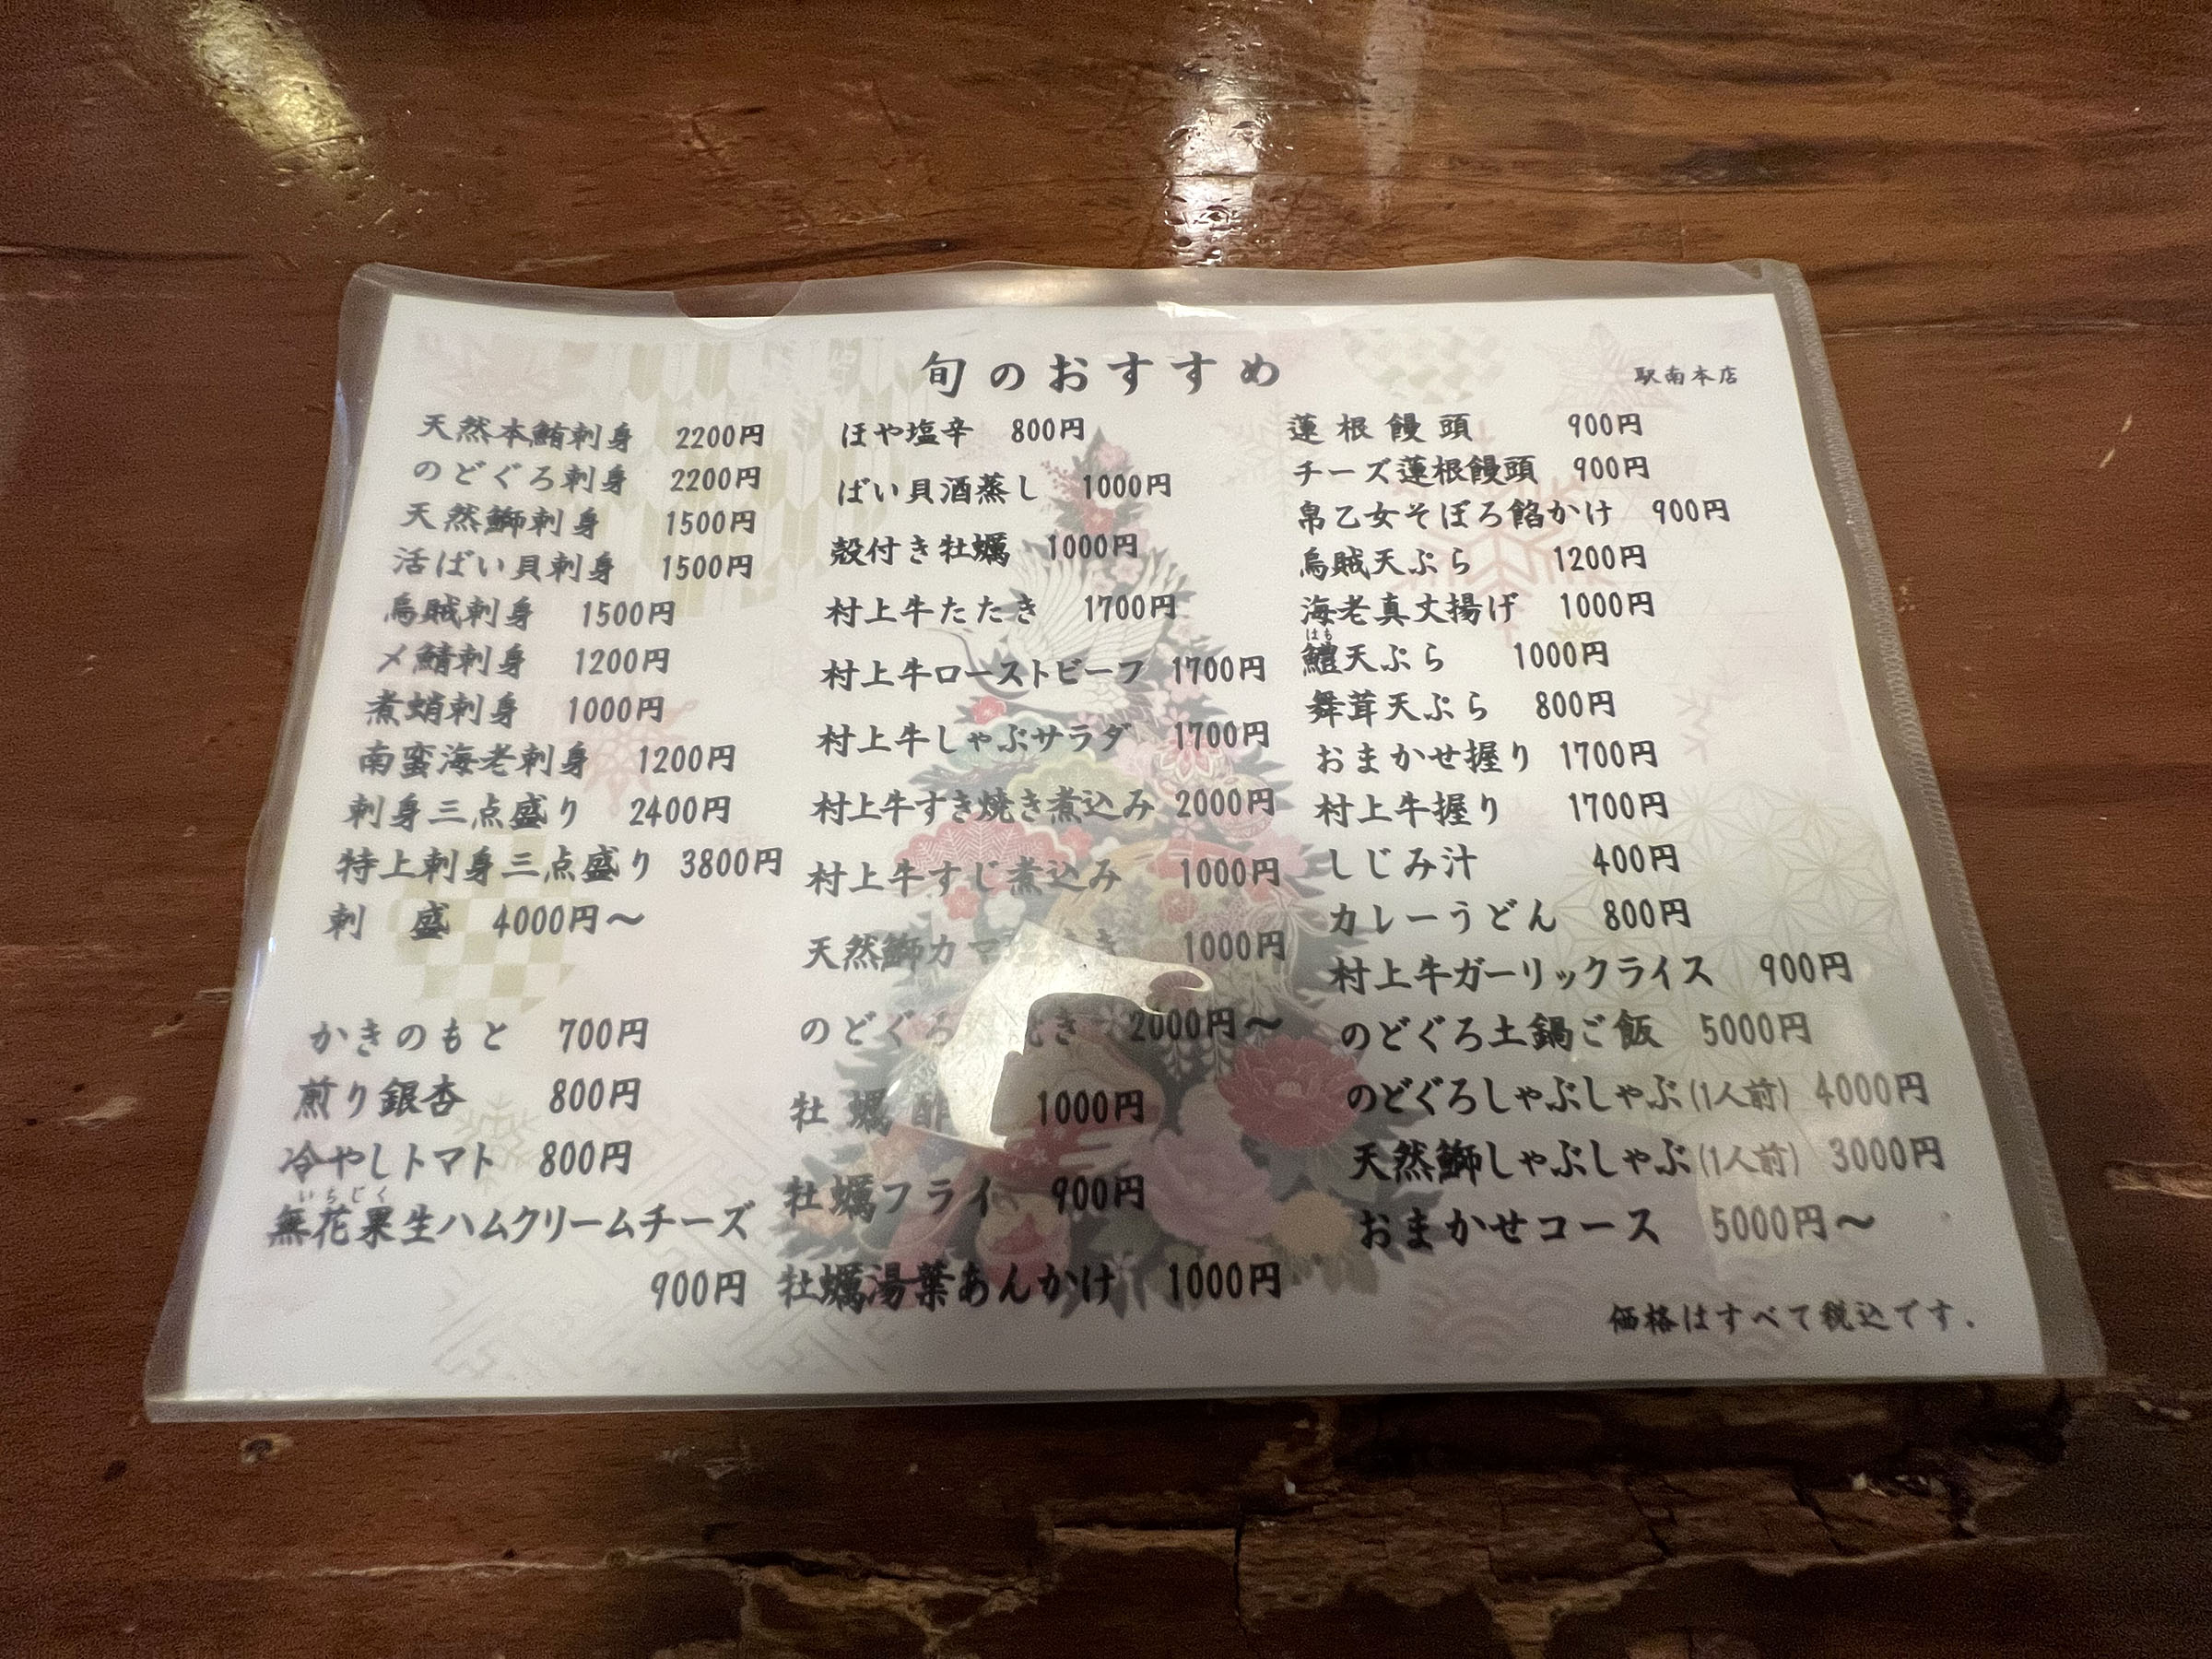 旬のおすすめ
駅南本店
天然本鮪刺身 2200円
のどぐろ刺身 2200円
天然鰤刺身 1500円
活ばい貝刺身 1500円
烏賊刺身 1500円
〆鯖刺身 1200円
煮蛸刺身 1000円
南蛮海老刺身 1200円
刺身三点盛り 2400円
特上刺身三点盛り 3800円
刺 盛 4000円〜
かきのもと 700円
煎り銀杏 800円
冷やしトマト 800円
いちじく
無花果生ハムクリームチーズ
900円
ほや塩辛 800円
ばい貝酒蒸し 1000円
殻付き牡蠣 1000円
村上牛たたき 1700円
村上牛ローストビーフ 1700円
村上牛しゃぶサラダ 1700円
村上牛すき焼き煮込み 2000円
村上牛すじ煮込み 1000円
天然鰤カマ 1000円
のどぐろ 2000円〜
牡蠣酢 1000円
牡蠣フライ 900円
牡蠣湯葉あんかけ 1000円
蓮根饅頭 900円
チーズ蓮根饅頭 900円
帛乙女そぼろ餡かけ 900円
烏賊天ぷら 1200円
海老真丈揚げ 1000円
はも
鱧天ぷら 1000円
舞茸天ぷら 800円
おまかせ握り 1700円
村上牛握り 1700円
しじみ汁 400円
カレーうどん 800円
村上牛ガーリックライス 900円
のどぐろ土鍋ご飯 5000円
のどぐろしゃぶしゃぶ(1人前) 4000円
天然鰤しゃぶしゃぶ(1人前) 3000円
おまかせコース 5000円〜
価格はすべて税込です.